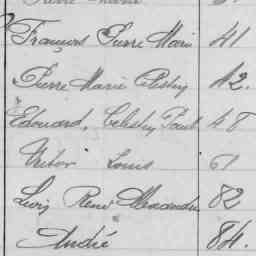 François Pierre Marie 41
Pierre Marie Célestin 42.
Edouard, Célestin Paul 48
Victor Louis 61
Louis René Alexandre 82
André 84.